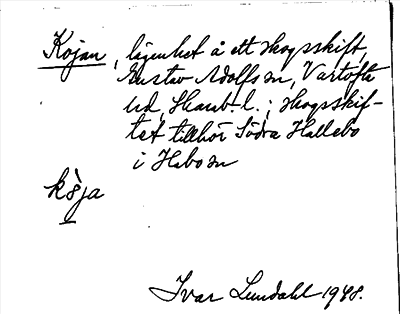 Kojan, lägenhet å ett skogsskift,
Gustav Adolfs sn, Vartofta
hd, Skarab. l.; skogsskif-
tet tillhör Södra Hallebo
i Habo sn
kò̀ja
Ivar Lundahl 1948.